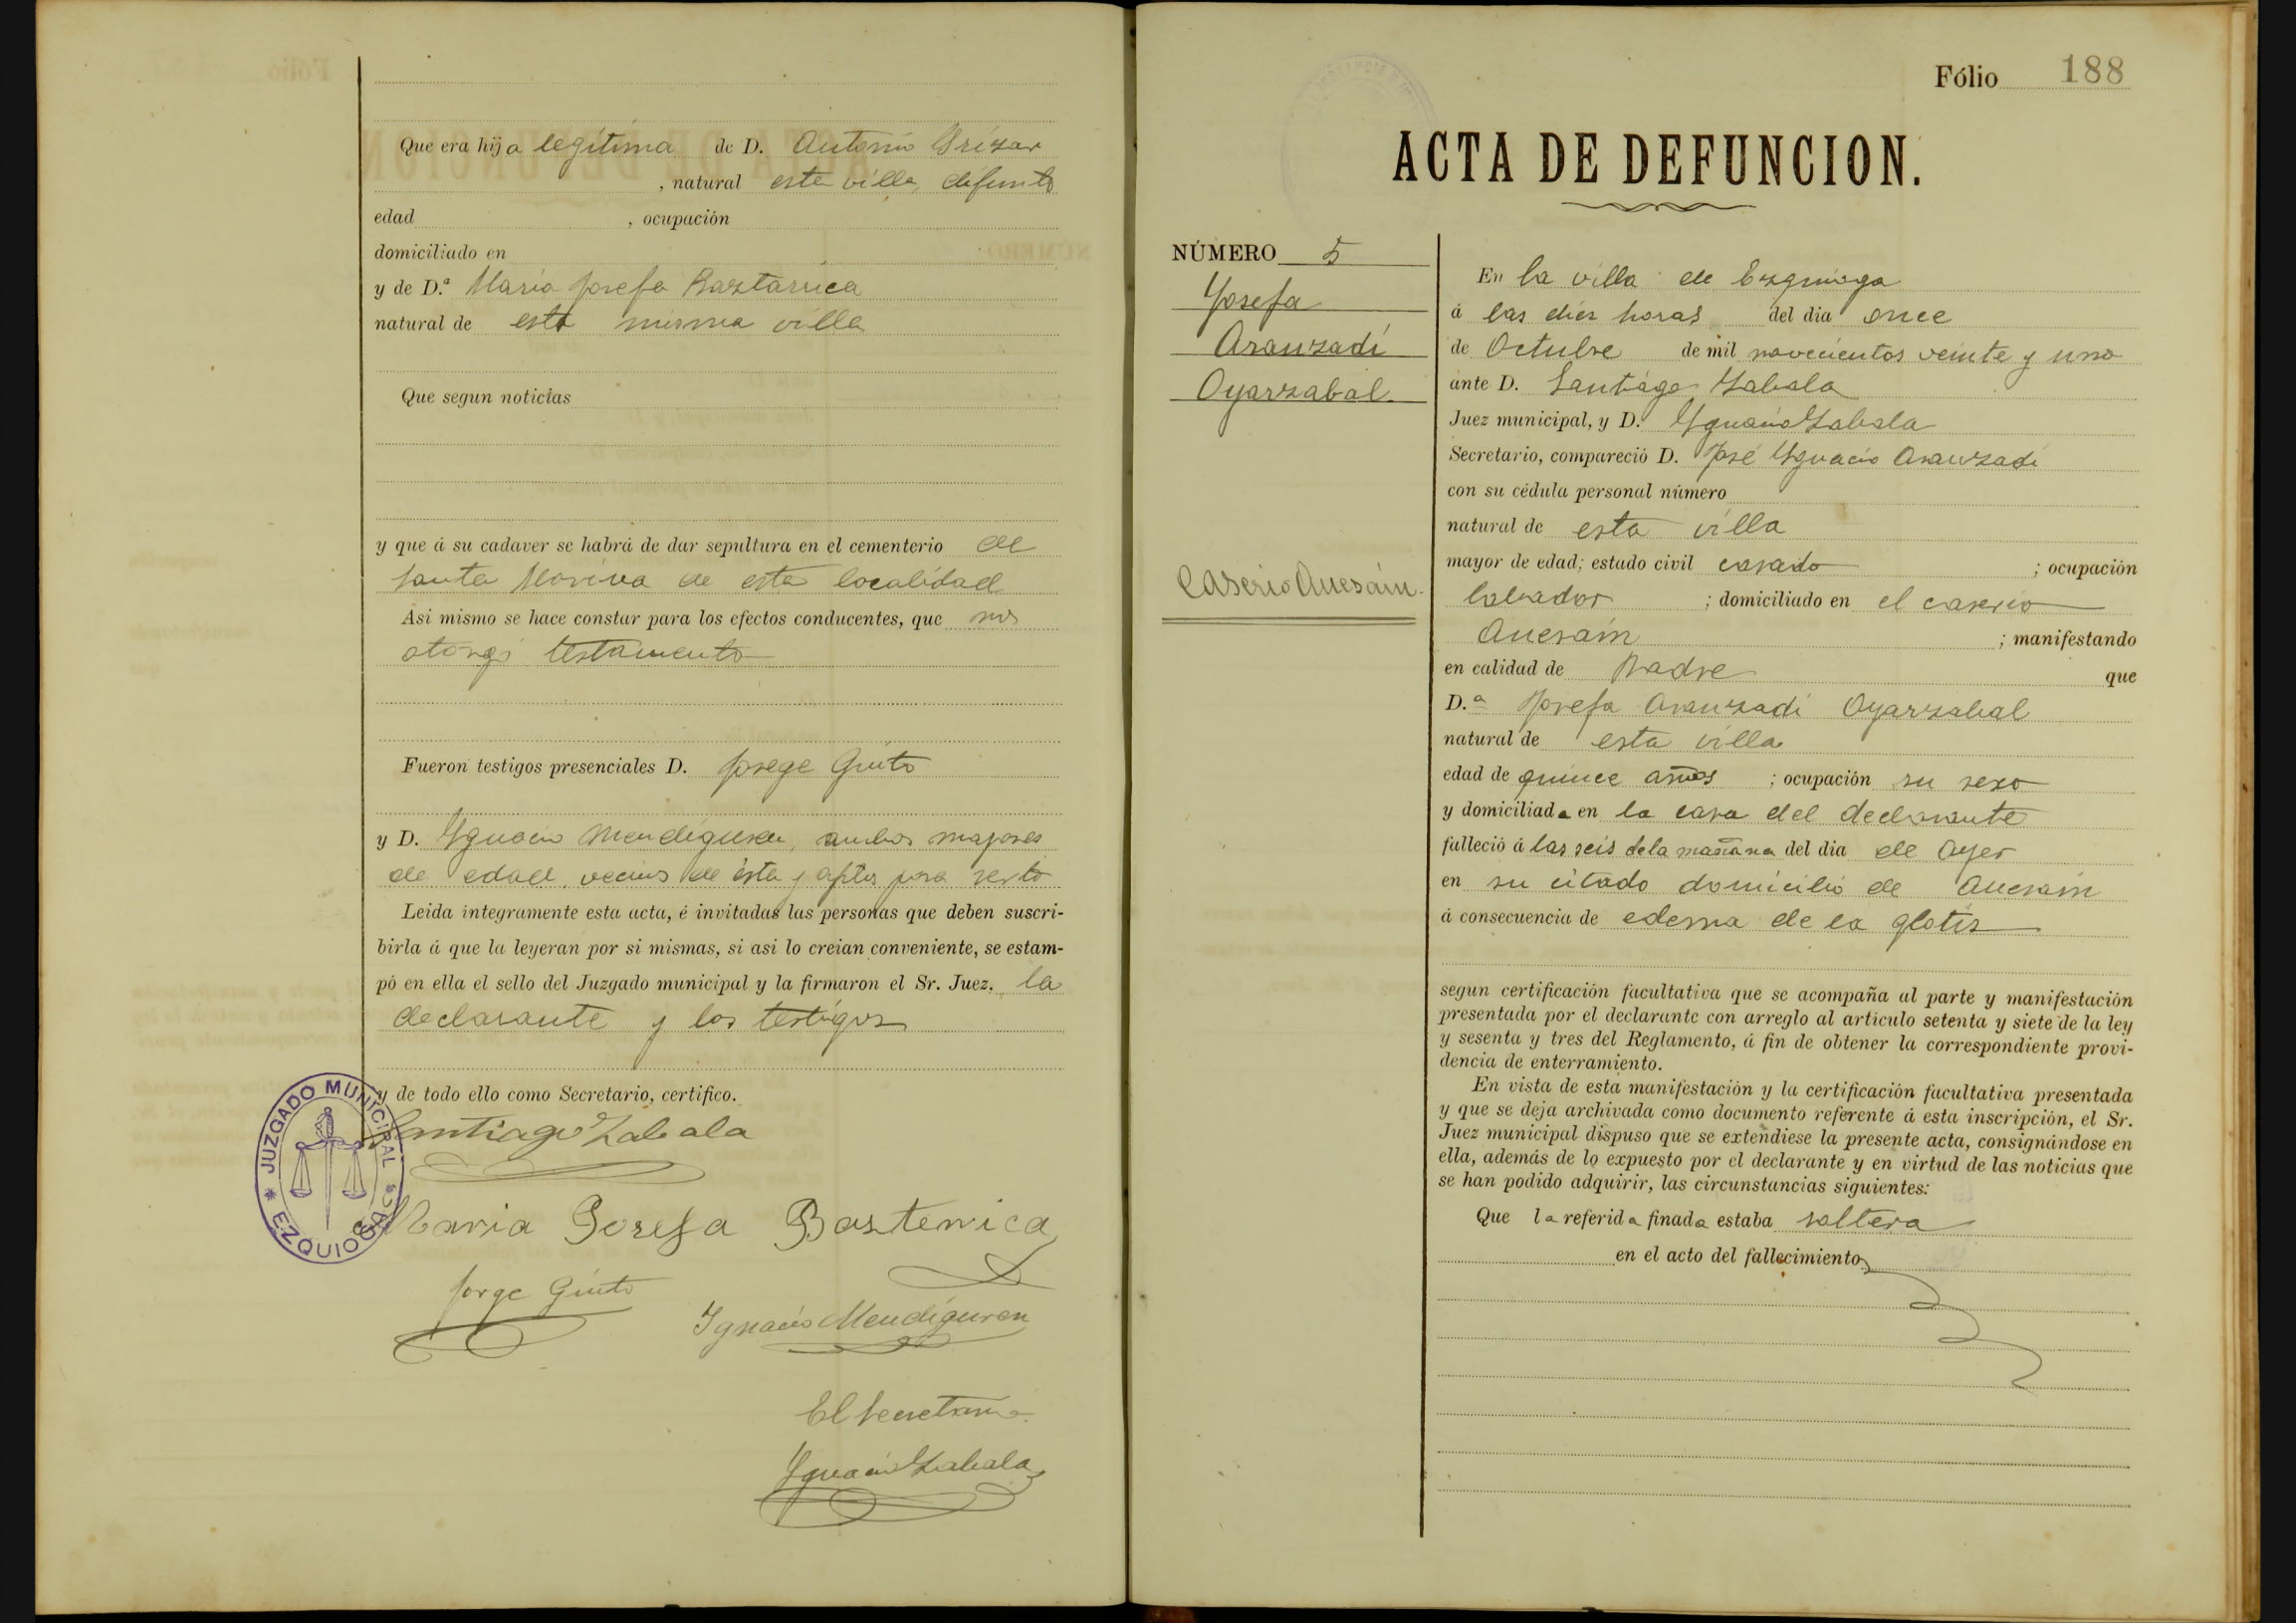 Que era hija legítima de D. Antonio Yrízar
, natural esta villa, difunto
edad , ocupación
domiciliado en
y de D.ª Maria Josefa Baztarrica
natural de esta misma villa
Que segun noticias
y que á su cadaver se habrá de dar sepultura en el cementerio de
Santa Marina de esta localidad
Asi mismo se hace constar para los efectos conducentes, que no
otorgó testamento
Fueron testigos presenciales D. Jorge Guito
y D. Ygnacio Mendiguren, ambos mayores
de edad, vecinos de esta y aptos para serlo
Leida integramente esta acta, é invitadas las personas que deben suscri-
birla á que la leyeran por si mismas, si asi lo creian conveniente, se estam-
pó en ella el sello del Juzgado municipal y la firmaron el Sr. Juez. la
declarante y los testigos
y de todo ello como Secretario, certifico.
JUZGADO MUNICIPAL
EZQUIOGA
Santiago Zabala
Maria Josefa Bastarrica
Jorge Guito
Ignacio Mendiguren
El Secretario
Ygnacio Zabala
Fólio 188
ACTA DE DEFUNCION.
NÚMERO 5
Josefa
Aranzadi
Oyarzabal
Caserio Anesain
En la villa de Ezquioga
á las diez horas del dia once
de Octubre de mil novecientos veinte y uno
ante D. Santiago Zabala
Juez municipal, y D. Ygnacio Zabala
Secretario, compareció D. José Ygnacio Aranzadi
con su cédula personal número
natural de esta villa
mayor de edad; estado civil casado ; ocupación
labrador ; domiciliado en el caserio
Anesain ; manifestando
en calidad de Padre que
D.ª Josefa Aranzadi Oyarzabal
natural de esta villa
edad de quince años ; ocupación su sexo
y domiciliada en la casa del declarante
falleció á las seis de la mañana del dia de Ayer
en su citado domicilio de Anesain
á consecuencia de edema de la glotis
segun certificación facultativa que se acompaña al parte y manifestación
presentada por el declarante con arreglo al articulo setenta y siete de la ley
y sesenta y tres del Reglamento, á fin de obtener la correspondiente provi-
dencia de enterramiento.
En vista de esta manifestación y la certificación facultativa presentada
y que se deja archivada como documento referente á esta inscripción, el Sr.
Juez municipal dispuso que se extendiese la presente acta, consignándose en
ella, además de lo expuesto por el declarante y en virtud de las noticias que
se han podido adquirir, las circunstancias siguientes:
Que la referida finada estaba soltera
en el acto del fallecimiento